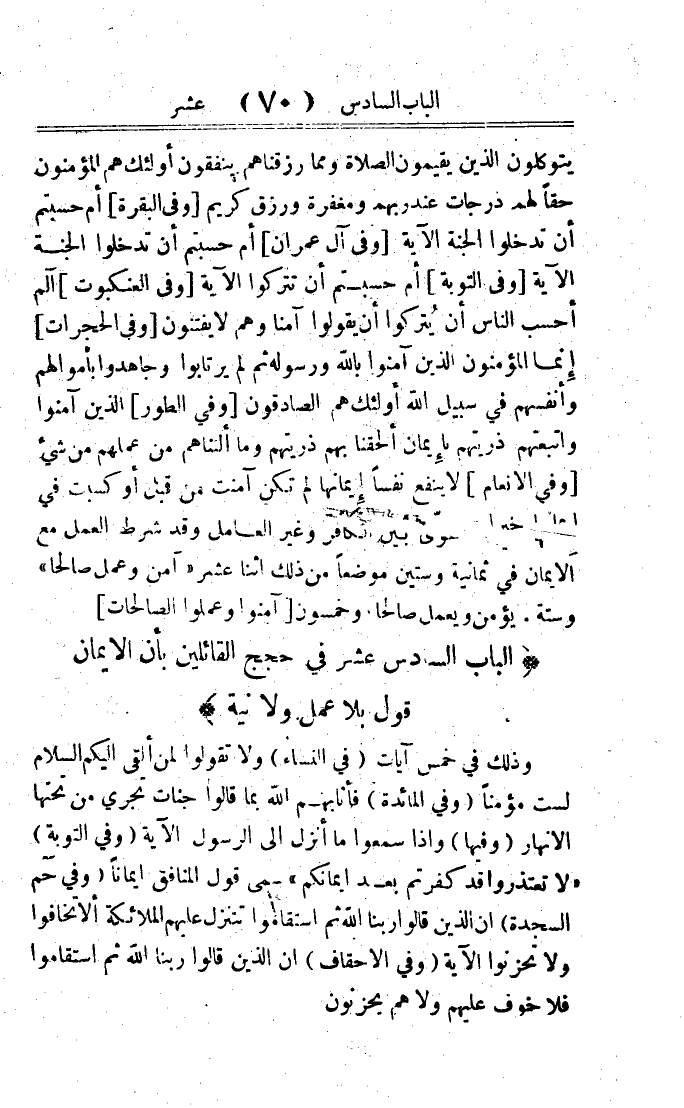 الباب السادس ( ٧٠ ) عشر
يتوكلون الذين يقيمون الصلاة ومما رزقناهم ينفقون أولئك هم المؤمنون
حقاً لهم درجات عند ربهم ومغفرة ورزق كريم [وفى البقرة] أم حسبتم
أن تدخلوا الجنة الآية [وفى آل عمران] أم حسبتم أن تدخلوا الجنة
الآية [وفى التوبة] أم حسبتم أن تتركوا الآية [وفى العنكبوت] آلم
أحسب الناس أن يُتركوا أن يقولوا آمنا وهم لا يفتنون [وفى الحجرات]
إنما المؤمنون الذين آمنوا بالله ورسوله ثم لم يرتابوا وجاهدوا بأموالهم
وأنفسهم في سبيل الله أولئك هم الصادقون [وفي الطور] الذين آمنوا
واتبعتهم ذريتهم بإيمان ألحقنا بهم ذريتهم وما ألتناهم من عملهم من شيء
[وفي الانعام] لا ينفع نفساً إيمانها لم تكن آمنت من قبل أو كسبت في
سوّى بين الكافر وغير العامل وقد شرط العمل مع
الايمان في ثمانية وستين موضعاً من ذلك اثنا عشر «آمن وعمل صالحا»
وستة . يؤمن ويعمل صالحا. وخمسون [آمنوا وعملوا الصالحات]
﴿ الباب السادس عشر في حجج القائلين بأن الايمان
قول بلا عمل ولا نية ﴾
وذلك في خمس آيات (في النساء) ولا تقولوا لمن ألقى اليكم السلام
لست مؤمناً (وفي المائدة) فأثابهم الله بما قالوا جنات تجري من تحتها
الانهار (وفيها) واذا سمعوا ما أنزل الى الرسول الآية (وفي التوبة)
«لا تعتذروا قد كفرتم بعد ايمانكم» سمى قول المنافق ايماناً (وفي حٓم
السجدة) ان الذين قالوا ربنا الله ثم استقاموا تتنزل عليهم الملائكة ألا تخافوا
ولا تحزنوا الآية (وفي الاحقاف) ان الذين قالوا ربنا الله ثم استقاموا
فلا خوف عليهم ولا هم يحزنون